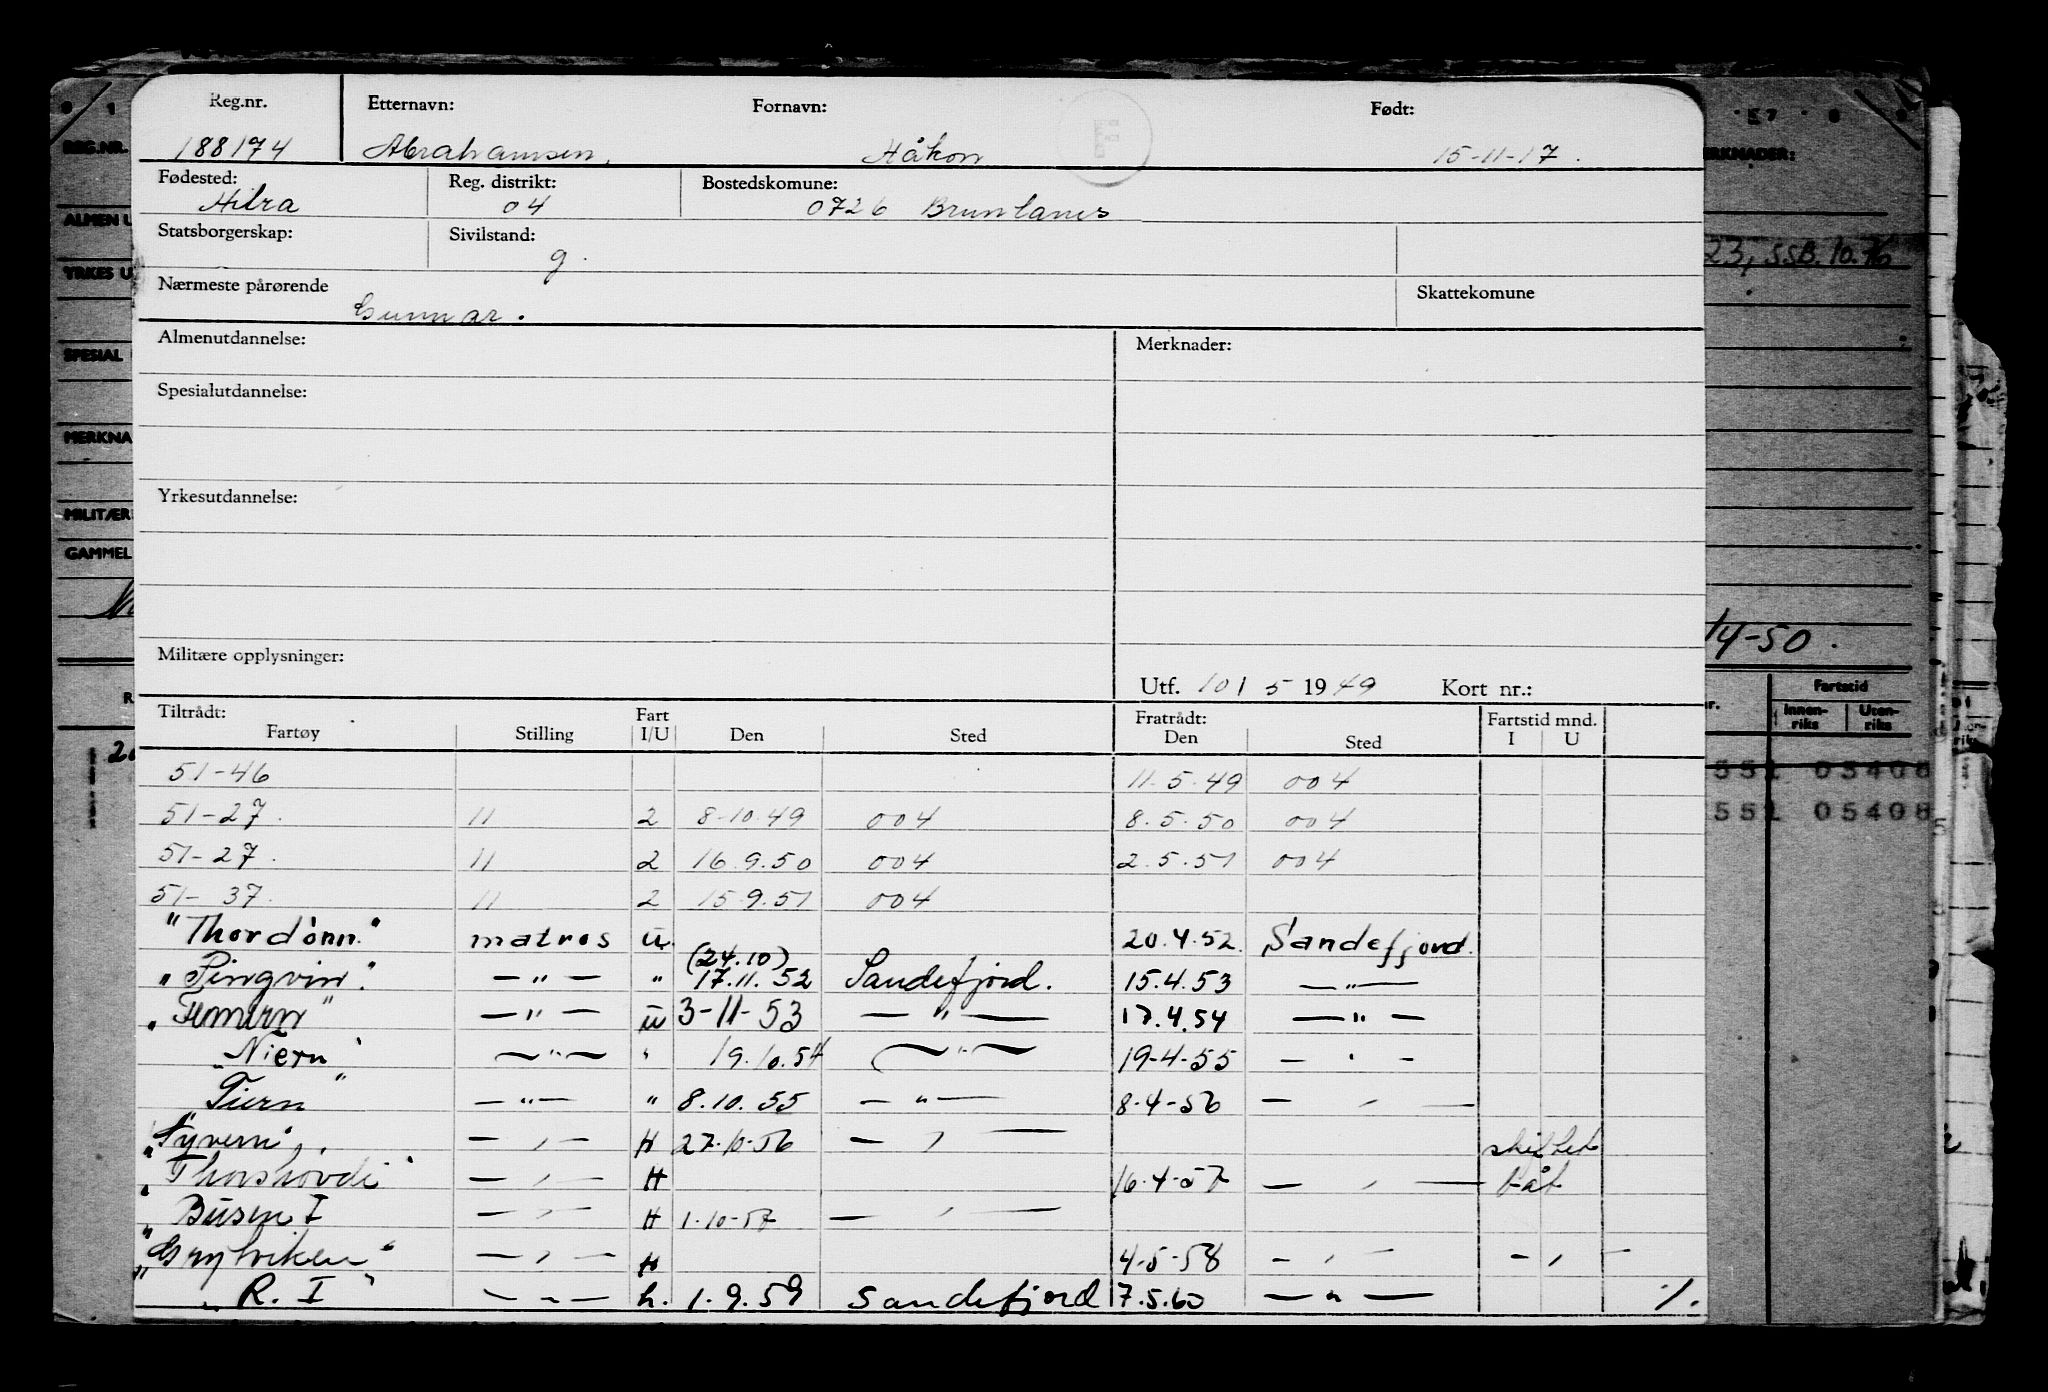 Reg.nr. Etternavn: Fornavn: Født:
188174 Abrahamsen, Håkon 15-11-17.
Fødested: Reg. distrikt: Bostedskomune:
Hitra 04 0726 Brunlanes
Statsborgerskap: Sivilstand:
g.
Nærmeste pårørende Skattekomune
Gunnar.
Almenutdannelse: Merknader:
Spesialutdannelse:
Yrkesutdannelse:
Militære opplysninger:
Utf. 101 5 1949 Kort nr.:
Tiltrådt: Fart Fratrådt: Fartstid mnd.
Fartøy Stilling I/U Den Sted Den Sted I U
51-46 11.5.49 004
51-27. 11 2 8-10.49 004 8.5.50 004
51-27. 11 2 16.9.50 004 2.5.51 004
51-37. 11 2 15.9.51 004
"Thordönn." matros u. 20.4.52. Sandefjord.
(24.10)
"Pingvin". —"— " 17.11.52 Sandefjord. 15.4.53 —"—
—"— u 3-11-53 —"— 17.4.54 —"—
"Niern" —"— " 19.10.54 —"— 19-4-55 — " —
Tiern" —"— " 8.10.55 —"— 8-4-56 — " —
"Tyvern", — " — H 27-10-56 — " — skiftet
"Thorshövdi" — " — H 16-4-57 — " — båt
"Busen I — " — H 1-10-57 — " —
"Grytviken" — " — H 4-5-58 — " — — " —
"R. I" — " — h. 1.9.59 Sandefjord 7.5.60 —"— ⁒.
REG.NR.
ALMEN U
YRKES U
SPESIAL
MERKNA
MILITÆR
GAMMEL
RKNADER:
23, SSB. 10.76
14-50.
Fartstid
Innen-riks Uten-riks
551 05408
551 05408